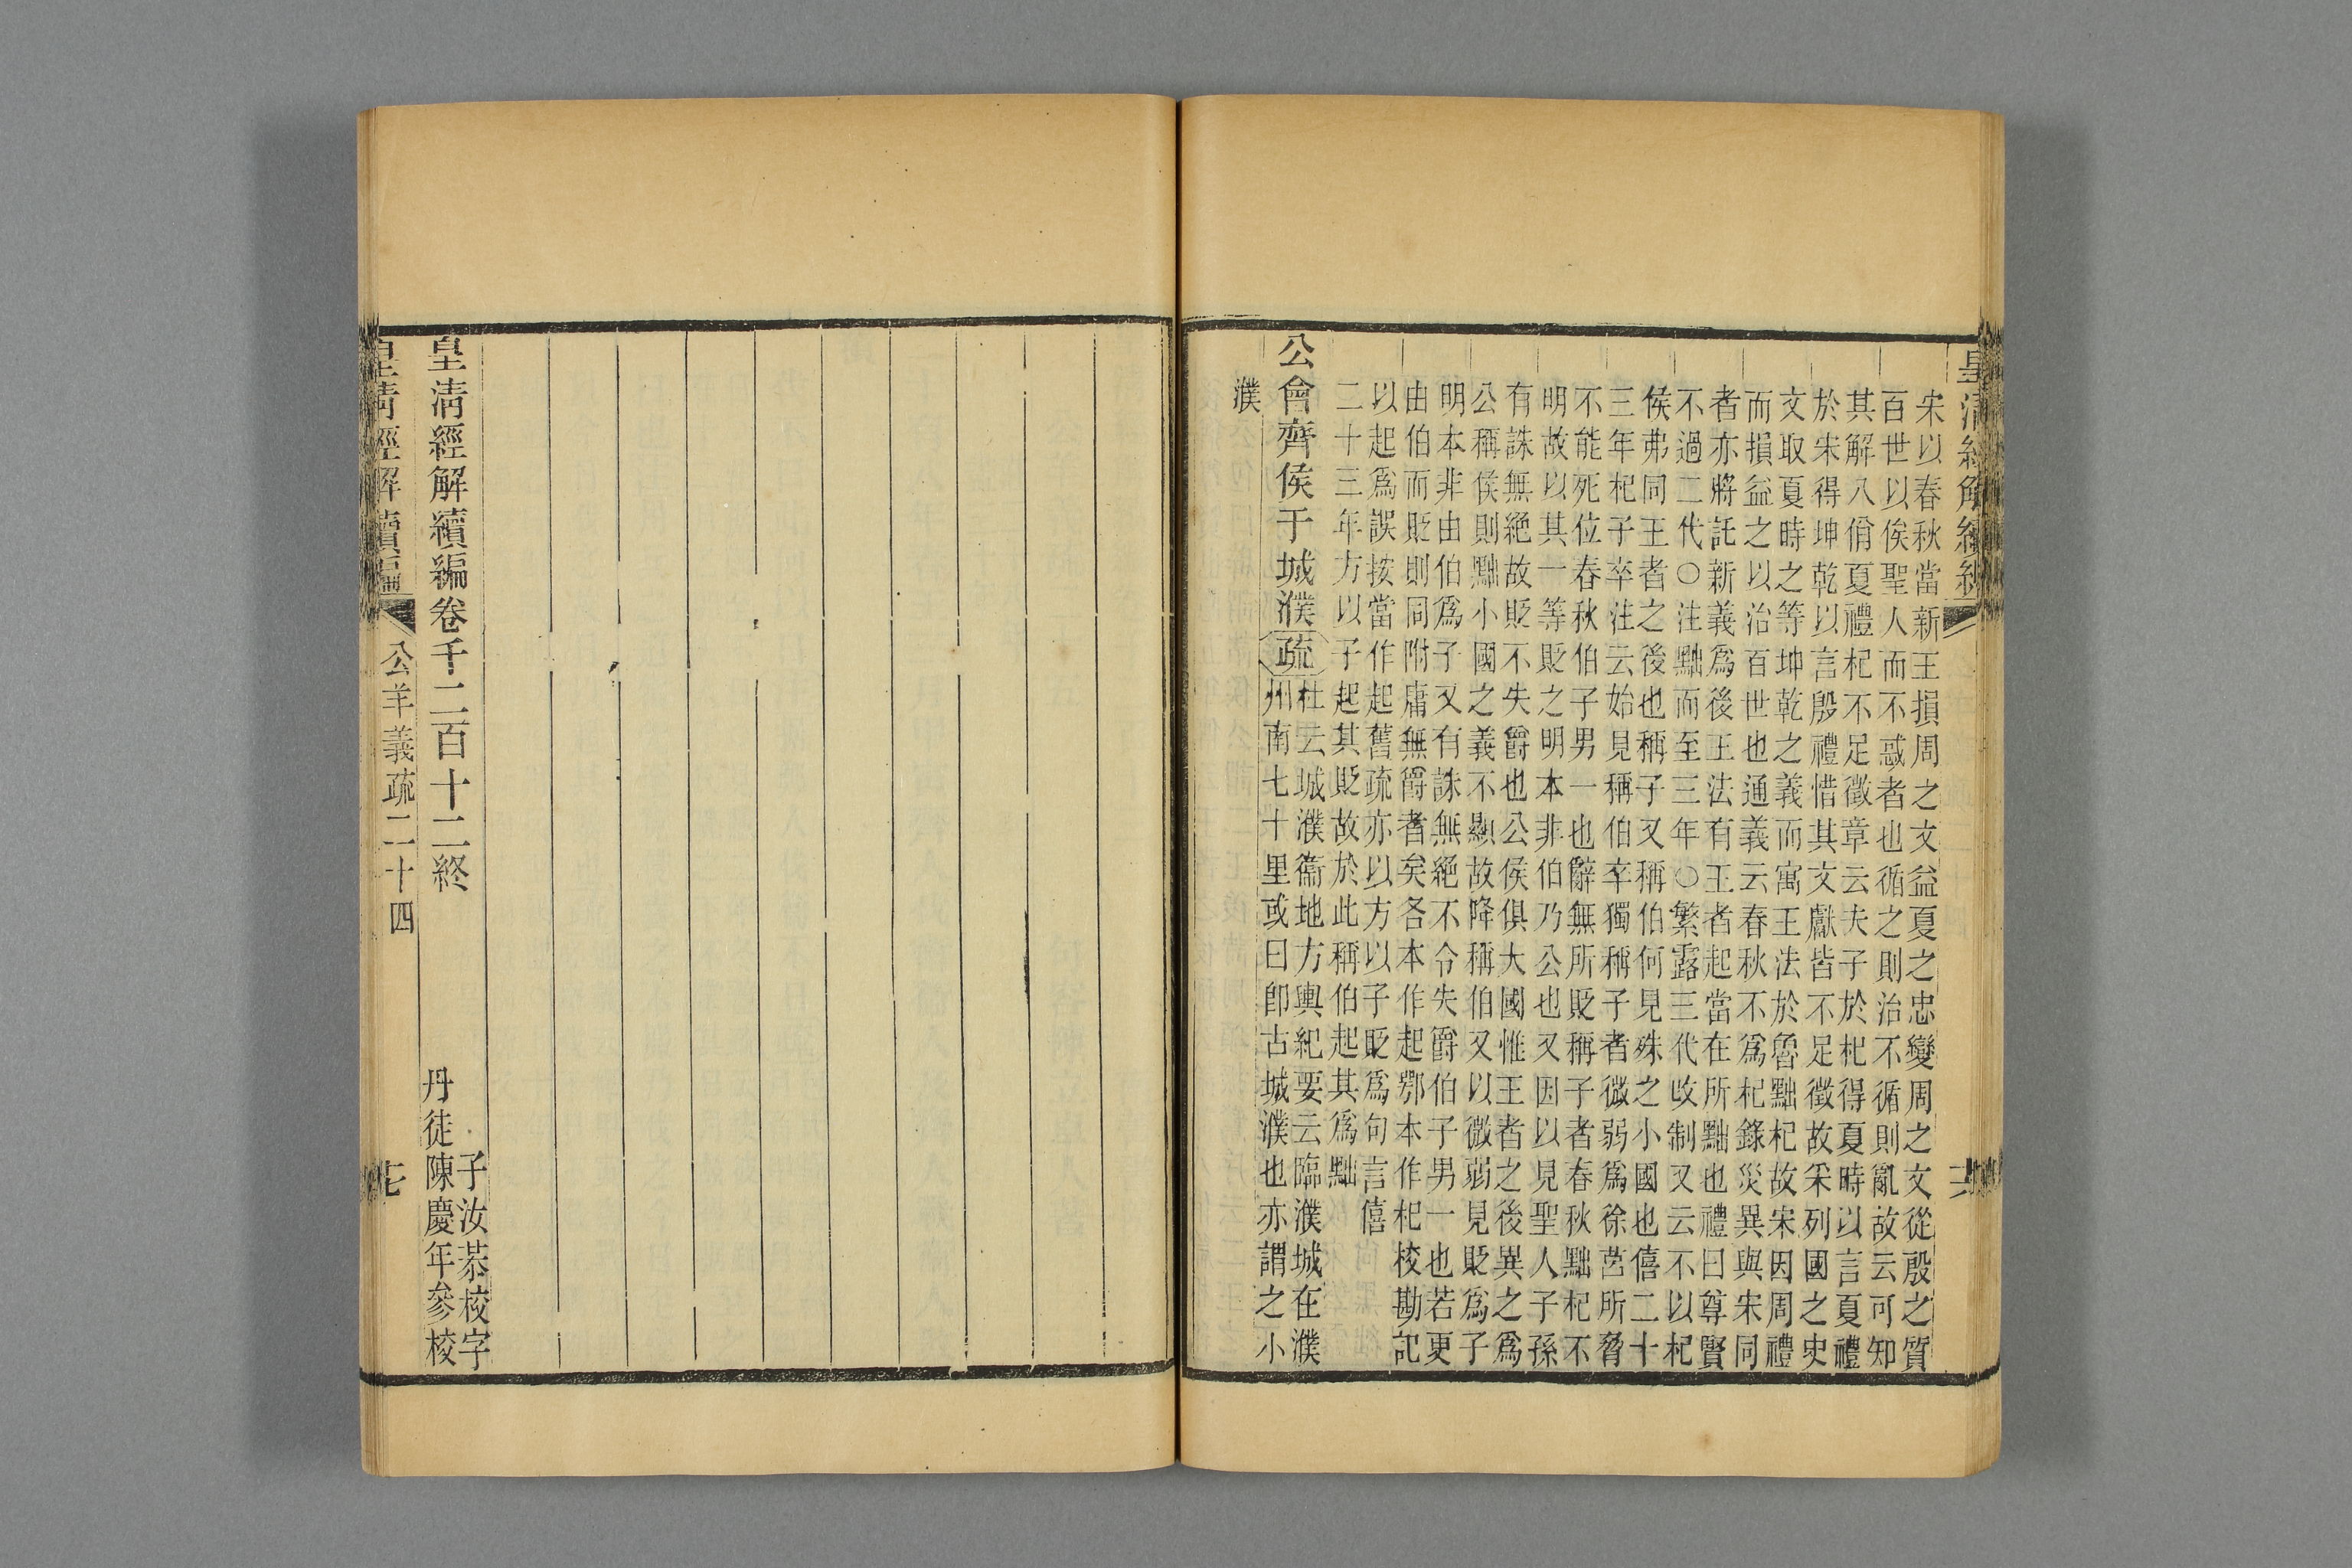 皇清經解續編
宋以春秋當新王損周之文益夏之忠變周之文從殷之質
百世以俟聖人而不惑者也循之則治不循則亂故云可知
其解八佾夏禮杞不足徵章云夫子於杞得夏時以言夏禮
於宋得坤乾以言殷禮惜其文獻皆不足徵故采列國之史
文取夏時之等坤乾之義而寓王法於魯黜杞故宋因周禮
而損益之以治百世也通義云春秋不爲杞錄災異與宋同
者亦將託新義爲後王法有王者起當在所黜也禮曰尊賢
不過二代○注黜而至三年○繁露三代改制又云不以杞
侯弗同王者之後也稱子又稱伯何見殊之小國也僖二十
三年杞子卒注云始見稱伯卒獨稱子者微弱爲徐莒所脅
不能死位春秋伯子男一也辭無所貶稱子者春秋黜杞不
明故以其一等貶之明本非伯乃公也又因以見聖人子孫
有誅無絕故貶不失爵也公侯俱大國惟王者之後異之爲
公稱侯則黜小國之義不顯故降稱伯又以微弱見貶爲子
明本非由伯爲子又有誅無絕不令失爵伯子男一也若更
由伯而貶則同附庸無爵者矣各本作起鄂本作杞校勘記
以起爲誤按當作起舊疏亦以方以子貶爲句言僖
二十三年方以子起其貶故於此稱伯起其爲黜
公會齊侯于城濮疏杜云城濮衞地方輿紀要云臨濮城在濮
州南七十里或曰卽古城濮也亦謂之小
濮
子汝恭校字
皇清經解續編卷千二百十二終
丹徒陳慶年參校
皇清經解續編 公羊義疏二十四